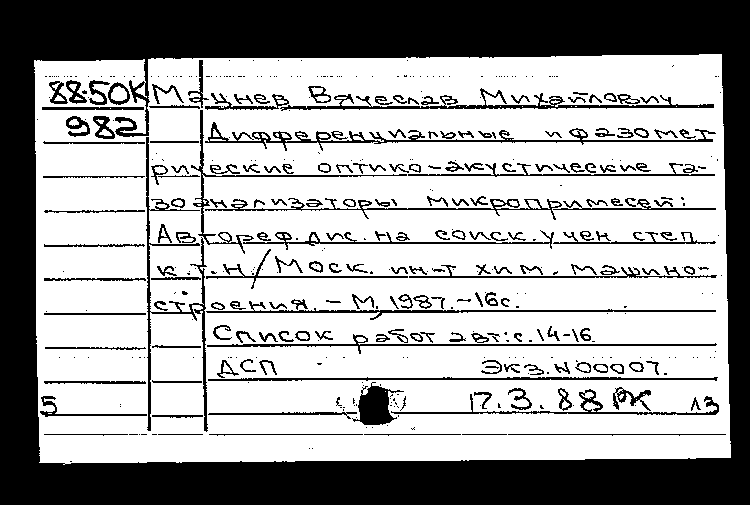 88-50К Мацнев Вячеслав Михайлович
982 Дифференциальные и фазомет-
рические оптико-акустические га-
зоанализаторы микропримесей:
Автореф. дис. на соиск. учен. степ
к.т.н. / Моск. ин-т хим. машино-
строения. - М., 1987. - 16с.
Список работ авт: с. 14-16
ДСП Экз. N00007.
5 17.3.88 РК 13